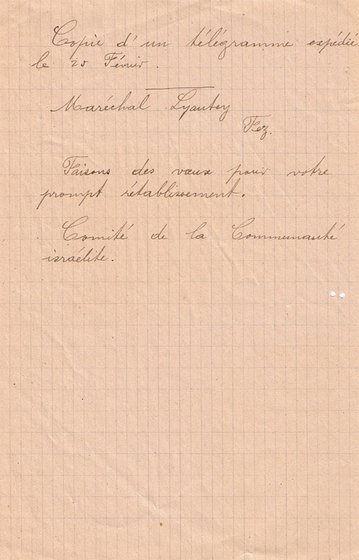 Copie d'un télégramme expédié
le 25 Février.
Maréchal Lyautey
Fez.
Faisons des vœux pour votre
prompt rétablissement.
Comité de la Communauté
israélite.